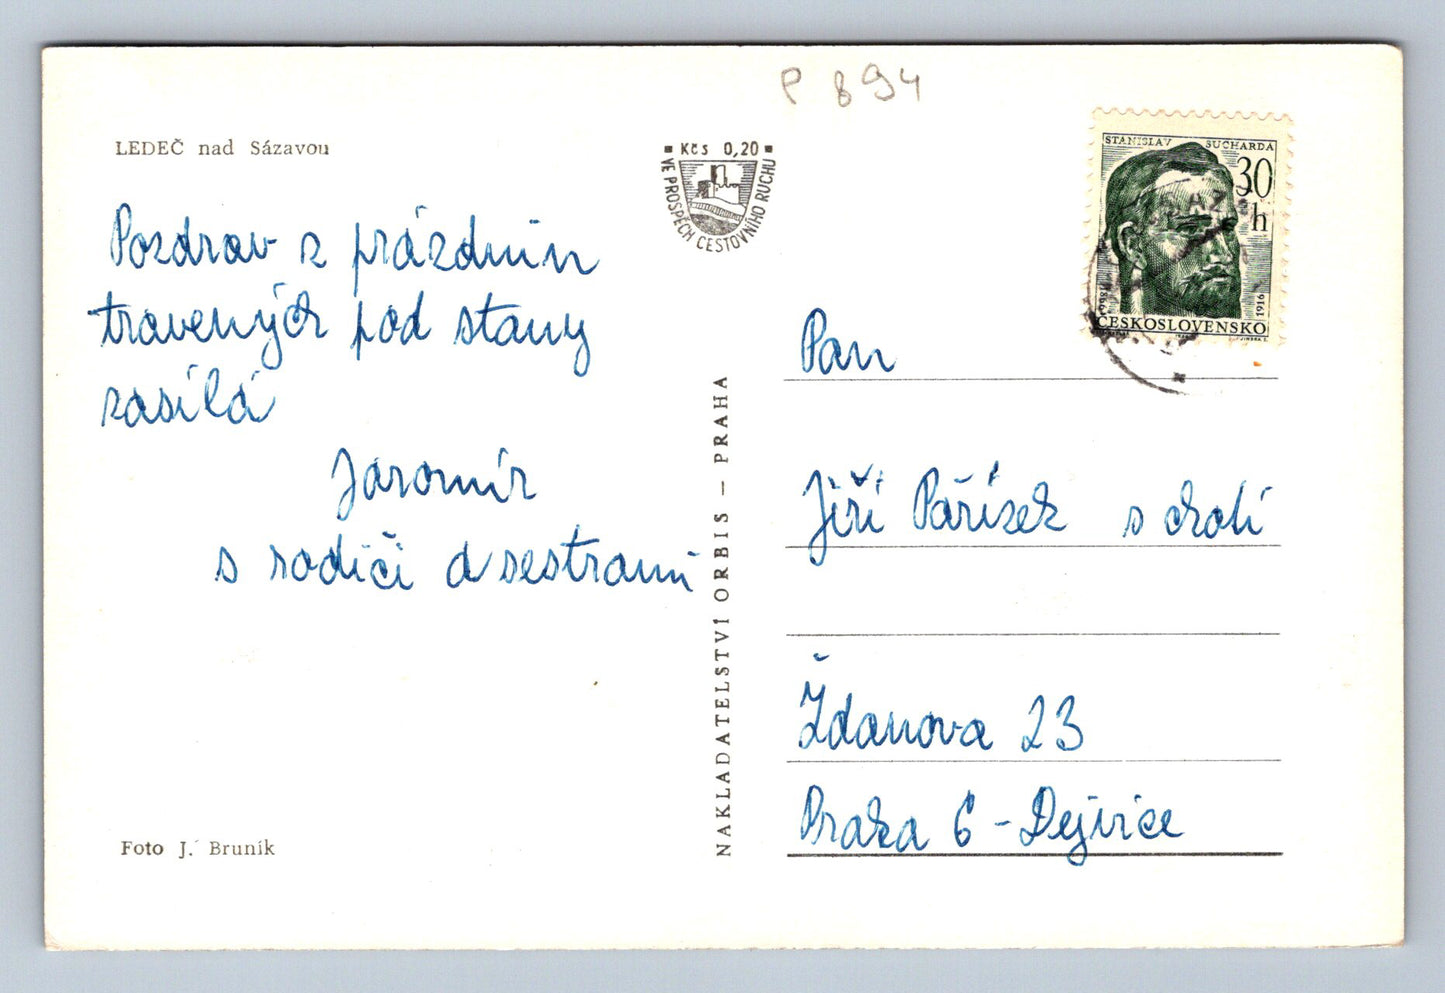 P 894
LEDEČ nad Sázavou
Pozdrav z prázdnin
travených pod stany
zasílá
Jaromír
s rodiči a sestrami
Foto J. Bruník
Kčs 0,20
VE PROSPĚCH CESTOVNÍHO RUCHU
NAKLADATELSTVÍ ORBIS – PRAHA
STANISLAV SUCHARDA
30
h
1866
1916
ČESKOSLOVENSKO
Pan
Jiří Pařísek s chotí
Ždanova 23
Praha 6 - Dejvice